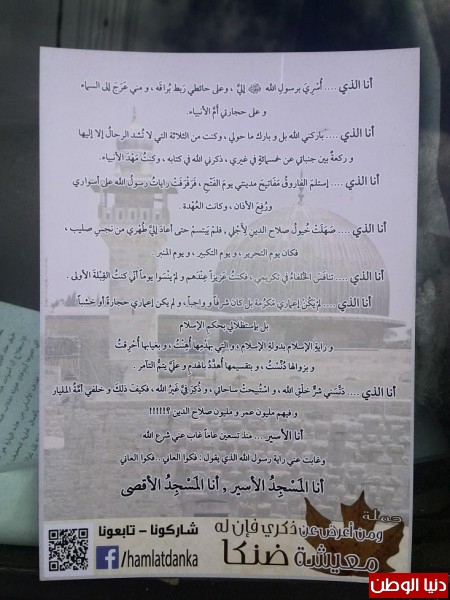 أنا الذي .... أُسْرِيَ برسولِ الله ﷺ إليَّ ، وعلى حائطي رَبط بُراقَه ، و مني عَرَجَ إلى السماء
و على حجارتي أمَّ الأنبياء.
أنا الذي .... باركني الله بل و بارك ما حولي ، وكنت من الثلاثة التي لا تُشد الرحالُ إلا إليها
و ركعةٌ بين جنباتي عن خمسمائةٍ في غيري ، ذكرني الله في كتابه ، وكنتُ مَهْدَ الأنبياء.
أنا الذي .... إستلمَ الفاروقُ مَفاتيحَ مدينتي يومَ الفَتْحِ ، فَرَفْرَفَتْ راياتُ رسولُ الله على أسواري
ورُفِعَ الأذان ، وكانت العُهْدة .
أنا الذي .... صَهَلَتْ خُيولُ صلاح الدينِ لِأجْلي ، فلم يَبتسمْ حتى أعادَ إليَّ طُهْري من نجسِ صليب ،
فكان يوم التحرير ، و يوم التكبير ، و يوم المنبر .
أنا الذي .... تنافَسَ الخلفاءُ في تكريمي ، فكنتُ عَزيزاً عِنْدَهم و لم يَنْسَوا يوماً أني كنتُ القِبْلةَ الأولى .
أنا الذي .... لم يَكُنْ إعماري مَكْرُمة بل كان شرفاً و واجباً ، و لم يكن إعماري حجارةً أو خشباً
بل بإستظلالي بحكمِ الإسلام
و رايةِ الإسلام بدولة الإسلام ، و التي بهدْمِها أُهِنْتُ ، و بغيابها أُحْرِقتُ
و بزوالها دُنِّسْتُ ، و بتقسيمها أُهَدَّدُ بالهدمِ و عليَّ يتمُّ التآمر .
أنا الذي .... دنَّسني شرُّ خلْقِ الله ، و استُبيحتْ ساحاتي ، و ذُكِرَ فيَّ غيرُ الله ، فكيفَ ذلك و خلفي أمَّةُ المليار
و فيهم مليون عمر و مليون صلاح الدين ؟!!!!!!
أنا الأسير... منذ تسعين عاماً غاب عني شرع الله
وغابت عني راية رسول الله الذي يقول : فكوا العاني ..فكوا العاني
أنا المَسْجِدُ الأسير , أنا المَسْجِدُ الأقصى
حملة
ومن أعرض عن ذكري فإن له
معيشة ضنكا
شاركونا - تابعونا
f /hamlatdanka
دنيا الوطن